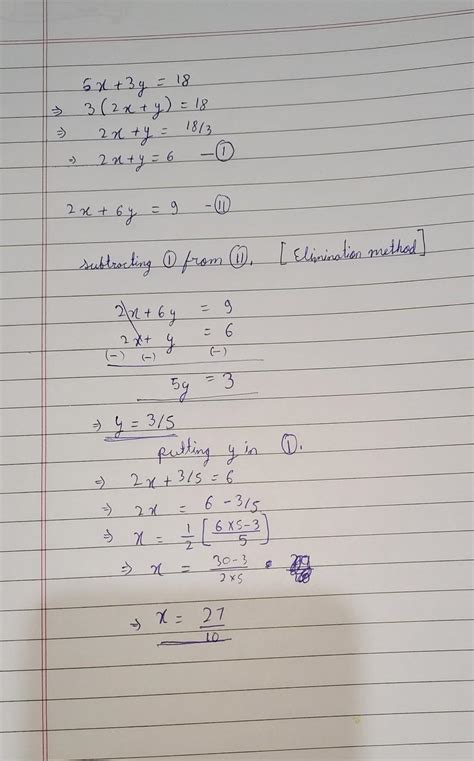 5x+3y = 18
⇒ 3(2x+y) = 18
⇒ 2x+y = 18/3
⇒ 2x+y = 6 — Ⓘ
2x+6y = 9 — Ⅱ
subtracting Ⓘ from Ⅱ. [Elimination method]
2x+6y = 9
2x+ y = 6
(-) (-) (-)
5y = 3
⇒ y = 3/5
putting y in Ⓘ.
⇒ 2x+3/5 = 6
⇒ 2x = 6-3/5
⇒ x = 1/2 [6×5-3/5]
⇒ x = 30-3/2×5
⇒ x = 27/10